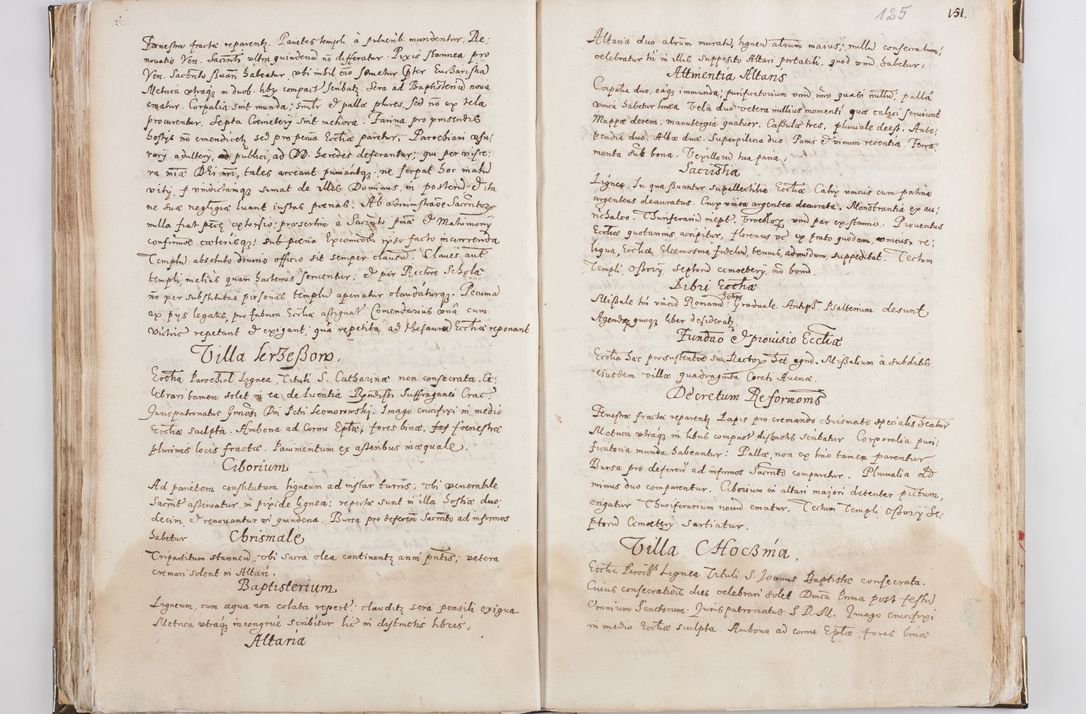 Fenestræ fractæ reparentr. Parietes templi à pulverib. mundentur. Re-
novatio Ven. Sacrñti ultra quindena nõ differatur. Pyxis stannea pro
Ven. Sacrñto habeatur, ubi
Metrica utraq in duob. libris compact scribatr. Sera ad Baptisteriũ nova
ematur. Corporalia sint munda, simlr et pallæ plures, sed nõ ex tela
procurentur. Septa Cœmeterij sint meliora. Farina pro
hostijs nõ emendicetr, sed pro Eccliæ paretur. Parochiani
adulteri, publici, ad hæredes deferantur, qui per visce-
ra tales arceant puniantq, ne serpat hoc malũ
et vindictamq sumat de illis Dominus, in posterũ et ita
ne suæ negligiæ luant iustas pœnas. Ab administrãoe Sacrntorũ
nulla fiat extorsio, præsertim à et Matrimonij
cæterisq, sub pœna ipso facto incurrenda
Templũ absoluto divino officio sit semper clausũ. Claves aut
templi melius quam hactenus serventur, et per Rectore Scholæ
nõ per substitutas personas templũ aperiatur claudaturq. Pecunia
ex pijs legatis, pro fabrica Eccliæ assignat Comendarius cum
Vitric repetant et exigant, quã repetita ad thesaurũ Eccliæ reponant
Villa IerzeBow.
Ecclia Parochĩ Lignea, Tituli S. Catharinæ non consecrata. Ce-
lebrari tamen solet in ea de licentia Rñdissi Suffraganei Crac.
Juris patronatus Gnrosi Dñi Petri Comorowski. Imago crucifixi in medio
Eccliæ sculpta. Ambona ad Cornu Epłæ, fores binæ, fenestræ
plurimis locis fractæ. Pavimentum ex asseribus inæquale.
Ciborium
Ad parietem constitutum ligneum ad instar turris, ubi venerabile
Sacrñt asservatur in pixide lignea, repertæ sunt in illa hostiæ duo-
decim, et renovantur in quindena. Bursa pro deferen Sacrñto ad infirmos
habetur
Chrismale
Tripartitum stanneũ, ubi sacra olea continentr anni pñtis, vetera
cremari solent in Altari.
Baptisterium
Ligneum, cum aqua non colata repert, claudit sera pensili exigua.
Metrica utraq incongrue scribitur hic in distinctis libris,
Altaria
125
151.
Altaria duo alterum muratũ, ligneũ alterum maius, nullũ consecratum,
celebratur tñ in illis supposito Altari portatili, quod unũ habetur,
Attinentia Altaris
Corporalia duo, eaq immunda, purificatorium unũ imo quasi nullũ, palla
unica habetur linea. Vela duo vetera nullius momenti quæ calici serviunt
Mappæ decem, manutergia quatuor. Casulæ tres, pluviale deest. Ante-
pendia duo, Albæ duæ. Superpellicia duo. Panis et vinum recentia. Ferra-
menta sub bona. Vexillorũ tria paria,
Sacristia
Lignea. In qua servantur supellectilia Eccliæ Calix unicus cum patina
argenteus deauratus. Crux unica argentea deaurata. Monstrantia ex au-
richalco. Thuriferariũ inept, unũ par ex stanno. Proventus
Eccliæ quotannis accipitur, florenus ex prato quodam unicus, re-
liqua, Eccliæ Eleemosina fidelium tenuis, admodum suppeditat. Tectum
Templi, Ossorij, Septorũ cœmeterij, nõ bonũ.
Libri Eccliæ
Missale tñ unicũ Romanũ, Graduale. Antiph. Psalterium desunt
Agendæ quoq liber desideratr.
Fundão et provisio Eccliæ
Ecclia hæc pro sustentãoe sui Rectoris Missalium à subditis
eiusdem villæ quadraginta Coreti Avenæ.
Decretum Reformõnis
Fenestræ fractæ reparentr. Lapis pro cremando chrismate specialis habeatur
Metrica utraq in libris compact distinctis scribatur Corporalia puri-
ficatoria munda habeantur: Pallæ, non ex lino tamen parentur
Bursa pro deferen ad infirmos Sacrñto comparetur. Pluvialia ad
minus duo comparentur. Ciborium in altari majori decenter pictum,
erigatur. Thuriferarium novũ ematur. Tectum Templi, Ossorij Se-
ptorũ Cemeterij Sartiatur.
Villa CHocznia.
Ecclia Paroch Lignea Tituli S. Joannis Baptistæ consecrata.
Cuius consecrationis dies celebrari solet Dñica prima post festũ
Omnium Sanctorum. Juris patronatus S. R. M. Imago crucifixi
in medio Eccliæ sculpta. Ambona ad cornu Epłæ fores binæ